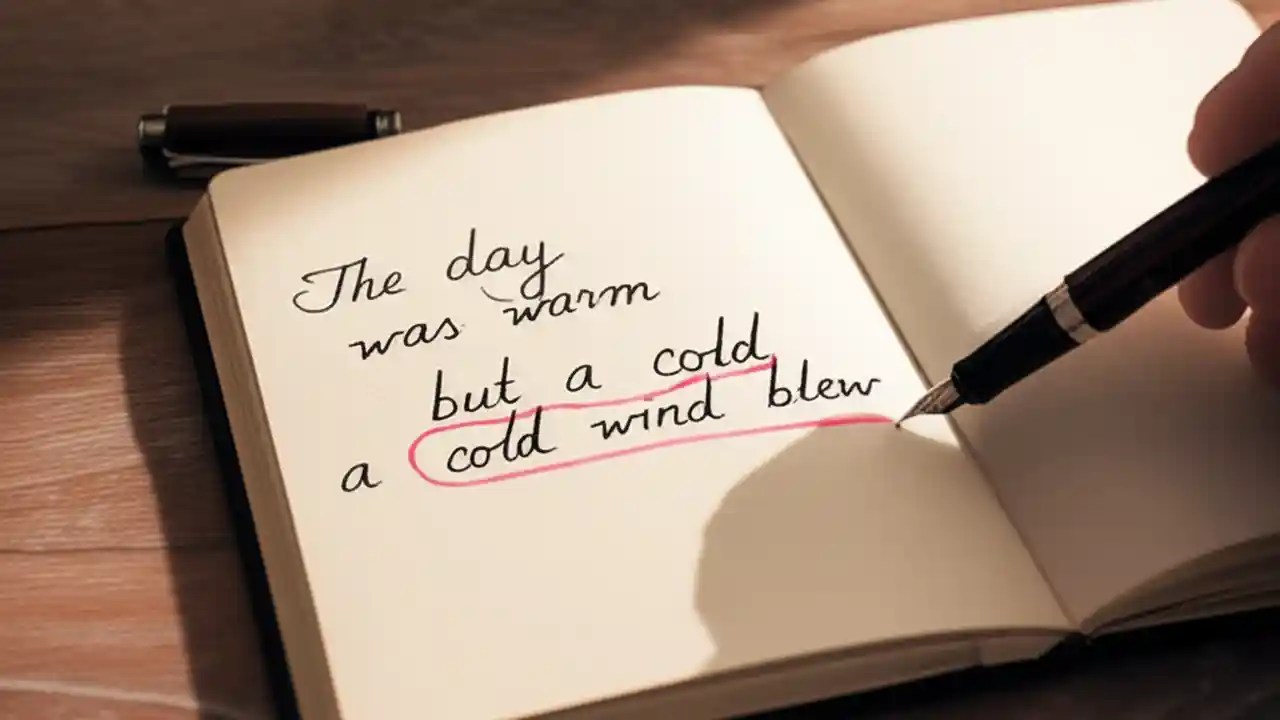 The day
was warm
but a cold
a cold wind blew